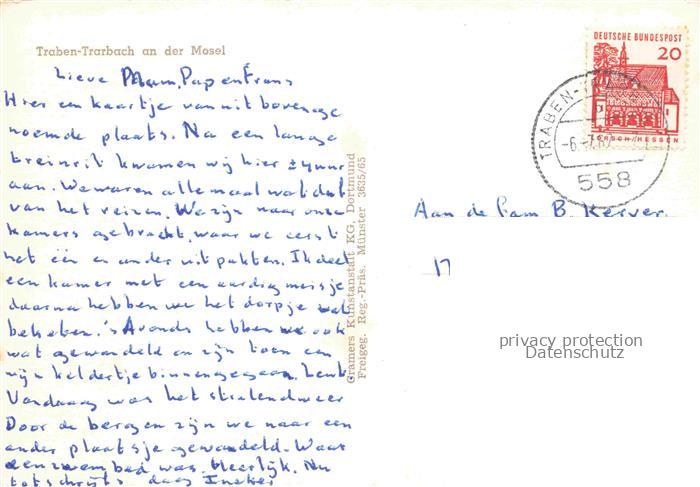 Traben-Trarbach an der Mosel
Lieve Mam, Pap en Frans
Hier een kaartje van uit bovenge
noemde plaats. Na een lange
treinrit kwamen wij hier ± 7 uur
aan. We waren allemaal wat duf
van het reizen. We zijn naar onze
kamers gebracht, waar we eerst
het één en ander uitpakten. Ik deel
een kamer met een aardig meisje
daarna hebben we het dorpje wat
bekeken. 's Avonds hebben we ook
wat gewandeld en zijn toen een
wijnkeldertje binnengegaan. Leuk
Vandaag was het stralend weer
Door de bergen zijn we naar een
ander plaatsje gewandeld. Waar
een zwembad was. Heerlijk. Nu
tot schrijfs daag Ineke
Cramers Kunstanstalt KG, Dortmund
Freigeg. Reg.-Präs. Münster 3635/65
DEUTSCHE BUNDESPOST
20
LORSCH/HESSEN
TRABEN-
-6.
558
Aan de Fam B. Kerver.
17
privacy protection
Datenschutz